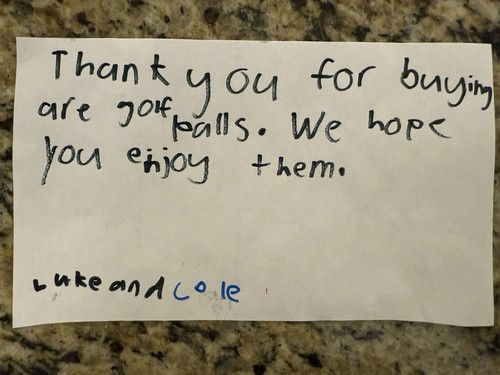 Thank you for buying
are golf balls. We hope
you enjoy them.
Luke and Cole